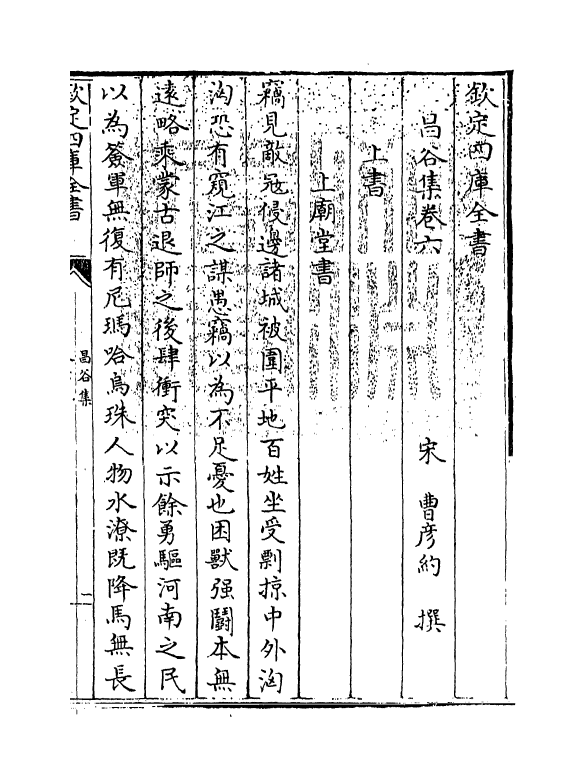 欽定四庫全書
昌谷集卷六
宋 曹彥約 撰
上書
上廟堂書
竊見敵冦侵邊諸城被圍平地百姓坐受剽掠中外洶
洶恐有窺江之謀愚竊以為不足憂也困獸强鬬本無
遠略乘蒙古退師之後肆衝突以示餘勇驅河南之民
以為簽軍無復有尼瑪哈烏珠人物水潦既降馬無長
欽定四庫全書
昌谷集